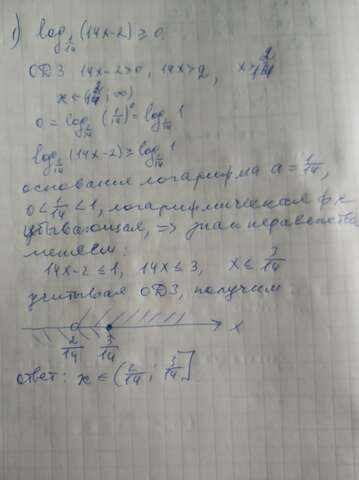 1) log_{1/14} (14x-2) ≥ 0
ОДЗ 14x-2>0, 14x>2, x>2/14
x ∈ (2/14; ∞)
0 = log_{1/14} (1/14)^0 = log_{1/14} 1
log_{1/14} (14x-2) ≥ log_{1/14} 1
основания логарифма a = 1/14,
0 < 1/14 < 1, логарифмическая ф-я
убывающая, => знак неравенства
меняем:
14x-2 ≤ 1, 14x ≤ 3, x ≤ 3/14
учитывая ОДЗ, получим
x
2/14 3/14
ответ: x ∈ (2/14; 3/14]